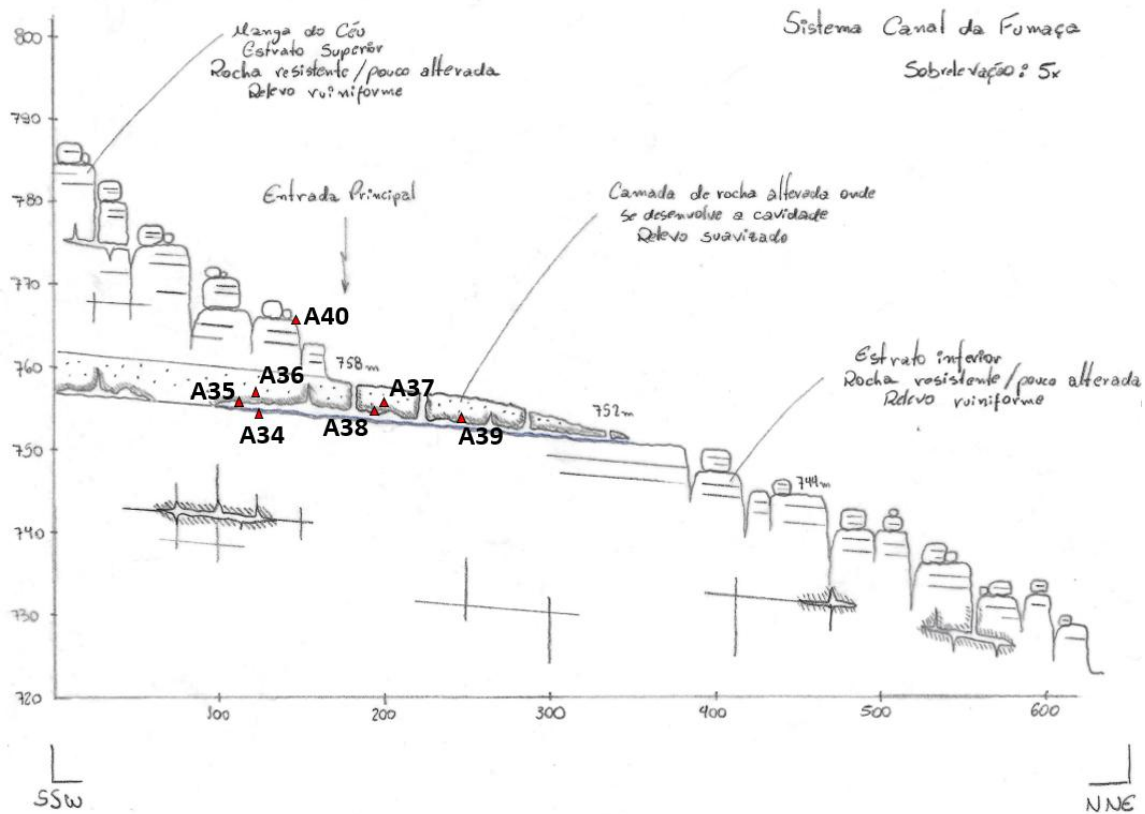 Sistema Canal da Fumaça
Sobrelevação: 5x
Manga do Céu
Estrato Superior
Rocha resistente/pouco alterada
Relevo ruiniforme
Entrada Principal
Camada de rocha alterada onde
se desenvolve a cavidade
Relevo suavizado
Estrato inferior
Rocha resistente/pouco alterada
Relevo ruiniforme
800
790
780
770
760
750
740
730
720
A40
758m
A36
A35
A37
A34
A38
A39
752m
744m
100
200
300
400
500
600
SSW
NNE